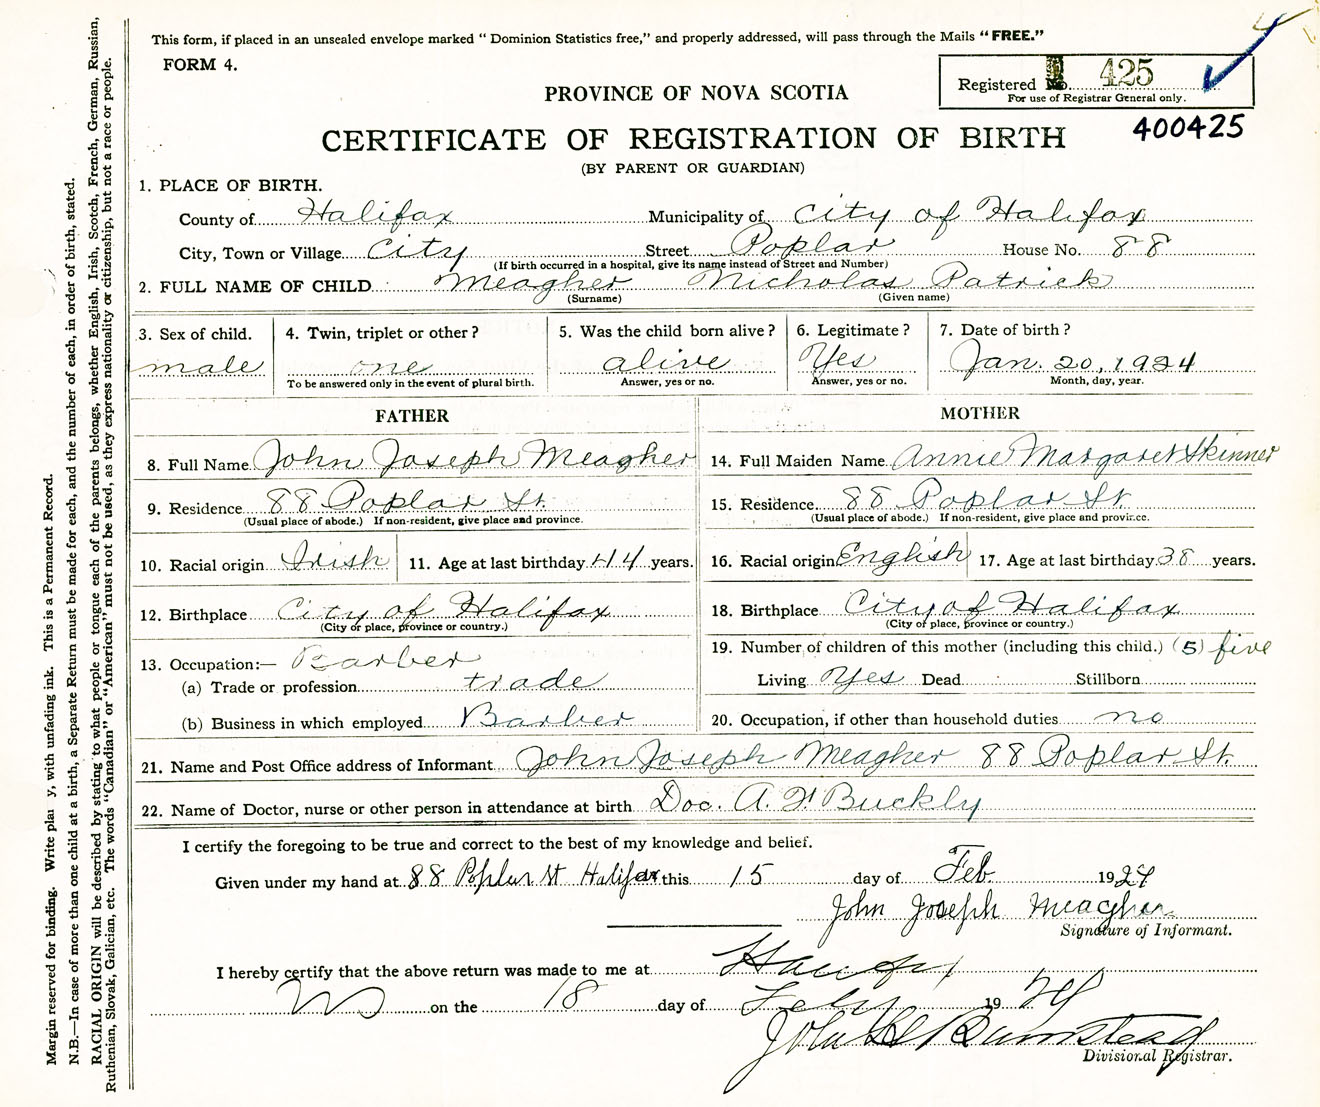 This form, if placed in an unsealed envelope marked " Dominion Statistics free," and properly addressed, will pass through the Mails "FREE."
FORM 4.
Registered No. 425
For use of Registrar General only.
PROVINCE OF NOVA SCOTIA
400425
CERTIFICATE OF REGISTRATION OF BIRTH
(BY PARENT OR GUARDIAN)
1. PLACE OF BIRTH.
County of Halifax Municipality of city of Halifax
City, Town or Village City Street Poplar House No. 88
(If birth occurred in a hospital, give its name instead of Street and Number)
2. FULL NAME OF CHILD Meagher Nicholas Patrick
(Surname) (Given name)
3. Sex of child. 4. Twin, triplet or other? 5. Was the child born alive? 6. Legitimate? 7. Date of birth?
male one alive Yes Jan. 20, 1924
To be answered only in the event of plural birth. Answer, yes or no. Answer, yes or no. Month, day, year.
FATHER MOTHER
8. Full Name John Joseph Meagher 14. Full Maiden Name Annie Margaret Skinner
9. Residence 88 Poplar St. 15. Residence 88 Poplar St.
(Usual place of abode.) If non-resident, give place and province. (Usual place of abode.) If non-resident, give place and province.
10. Racial origin Irish 11. Age at last birthday 44 years. 16. Racial origin English 17. Age at last birthday 38 years.
12. Birthplace City of Halifax 18. Birthplace City of Halifax
(City or place, province or country.) (City of place, province or country.)
13. Occupation:— Barber 19. Number of children of this mother (including this child.) (5) five
(a) Trade or profession trade Living Yes Dead Stillborn
(b) Business in which employed Barber 20. Occupation, if other than household duties no
21. Name and Post Office address of Informant John Joseph Meagher 88 Poplar St.
22. Name of Doctor, nurse or other person in attendance at birth Doc. A. F. Buckly
I certify the foregoing to be true and correct to the best of my knowledge and belief.
Given under my hand at 88 Poplar St Halifax this 15 day of Feb 1924
John Joseph Meagher
Signature of Informant.
I hereby certify that the above return was made to me at Halifax
NS on the 18 day of Feby 1924
Barnstead
Divisional Registrar.
Margin reserved for binding. Write pla y, with unfading ink. This is a Permanent Record.
N.B.—In case of more than one child at a birth, a Separate Return must be made for each, and the number of each, in order of birth, stated.
RACIAL ORIGIN will be described by stating to what people or tongue each of the parents belongs, whether English, Irish, Scotch, French, German, Russian,
Ruthenian, Slovak, Galician, etc. The words "Canadian" or "American" must not be used, as they express nationality or citizenship, but not a race or people.